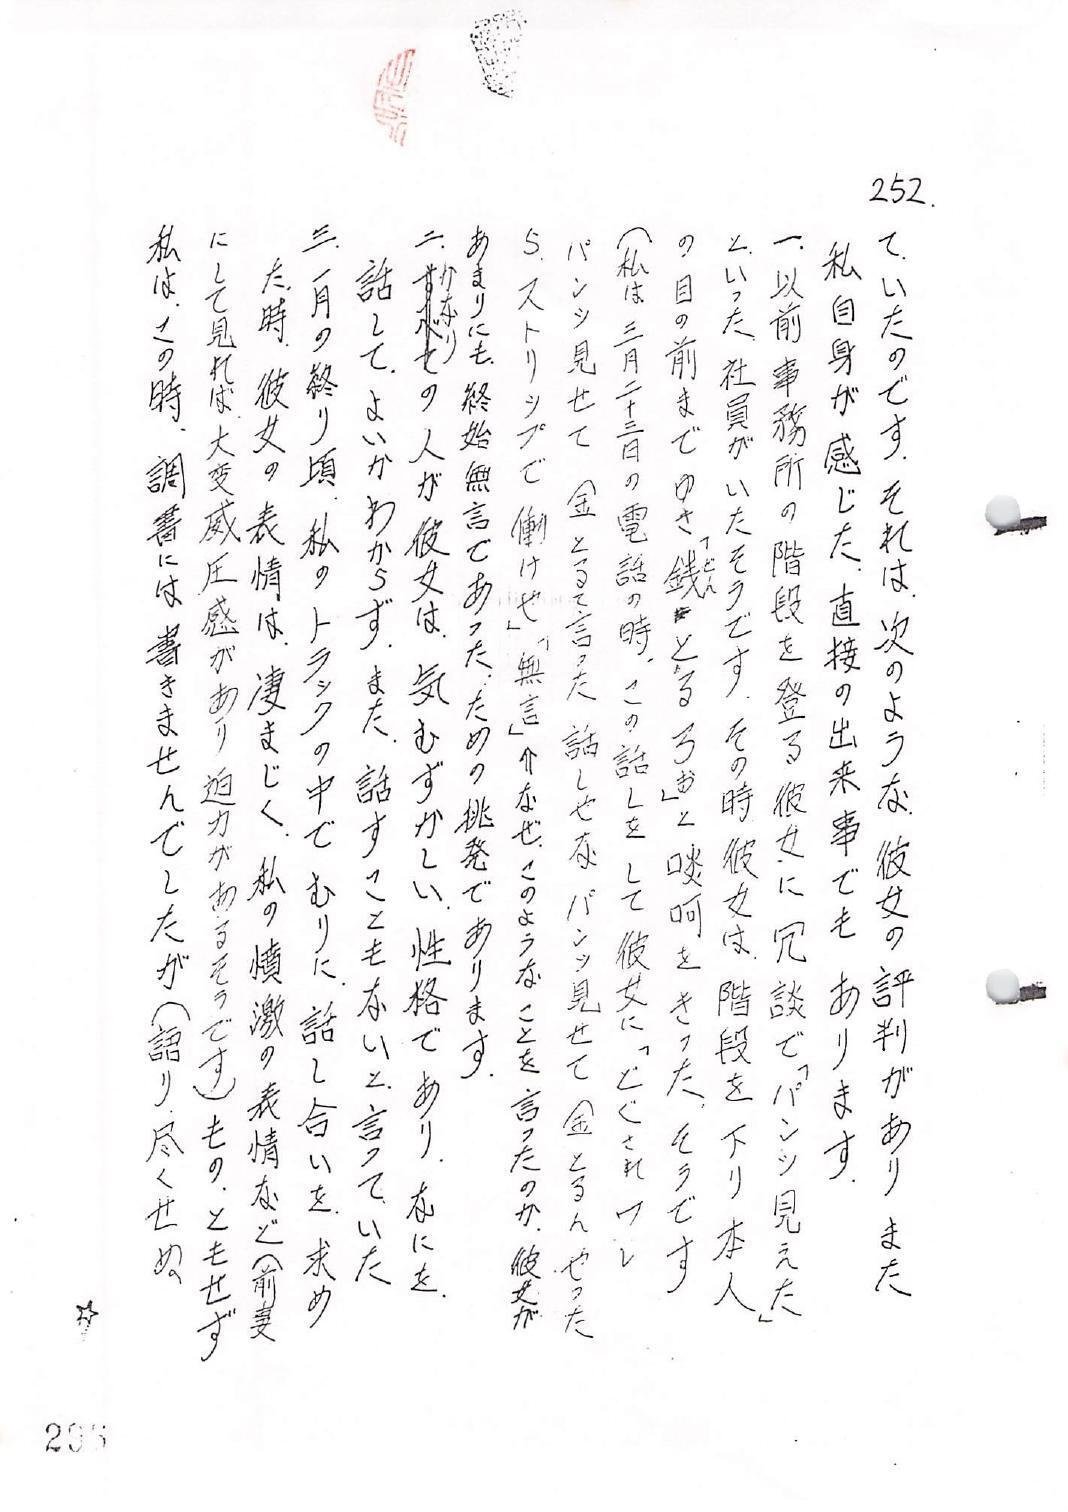 252.
て、いたのです。それは、次のような、彼女の評判があり また
私自身が感じた、直接の出来事でも あります。
一、以前事務所の階段を登る彼女に冗談で「パンツ見えた」
と、いった、社員が いたそうです。その時彼女は、階段を下り本人
の目の前まで ゆき「どん 銭 とるろお」と啖呵を きった、そうです
(私は三月二十三日の電話の時、この話しをして彼女に「どぐされ ワレ
パンツ見せて 金とるて言った 話しやな パンツ見せて 金とるんやった
ら、ストリップで 働けや」「無言」⇑なぜ、このような ことを 言ったのか、彼女が
あまりにも、終始無言であった、ための挑発であります。
二、かなりの人が彼女は、気むずかしい、性格であり、なにを、
話して、よいか わからず、また、話すこともないと、言って、いた
三、一月の終り頃、私のトラックの中で むりに、話し合いを、求め
た、時、彼女の表情は、凄まじく、私の憤激の表情など(前妻
にして見れば、大変威圧感があり 迫力が あるそうです)もの、ともせず
私は、この時、調書には書きませんでしたが(語り、尽くせぬ、
☆